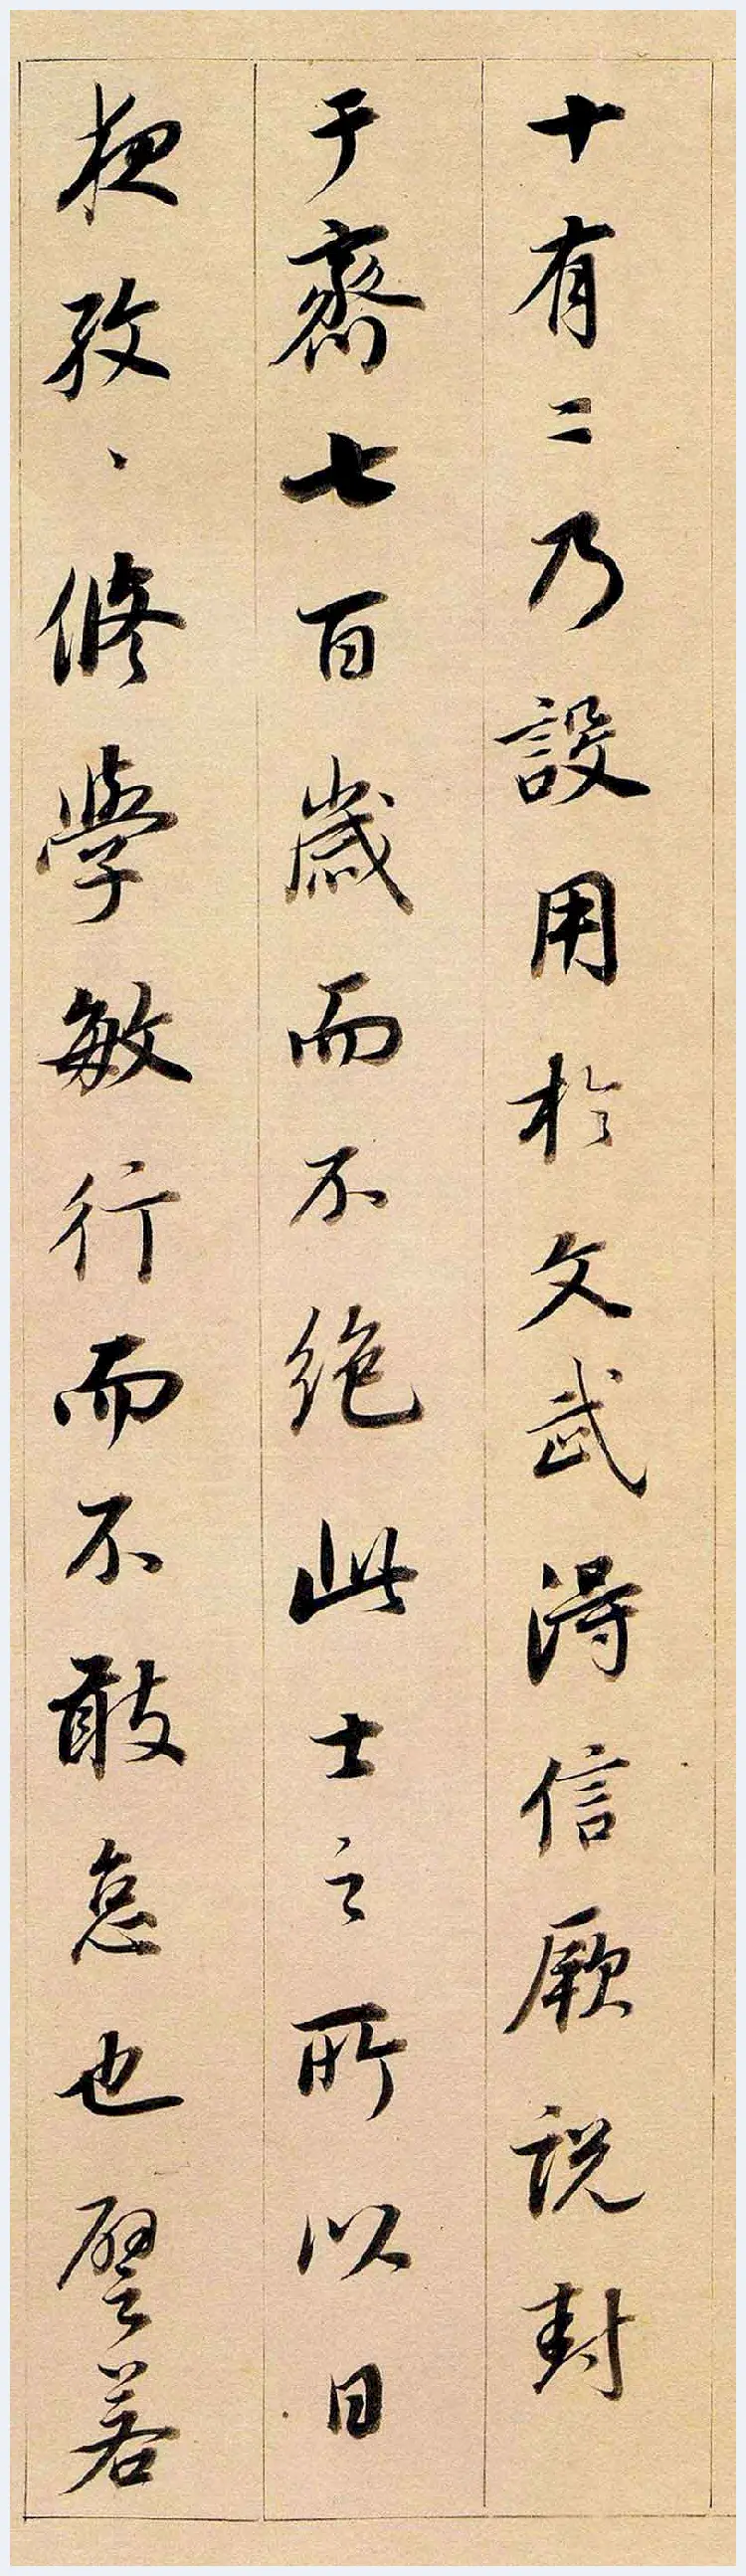 十有二乃設用於文武得信厥説封
于齋七百歲而不絕此士之所以日
夜孜、修學敏行而不敢怠也譬若